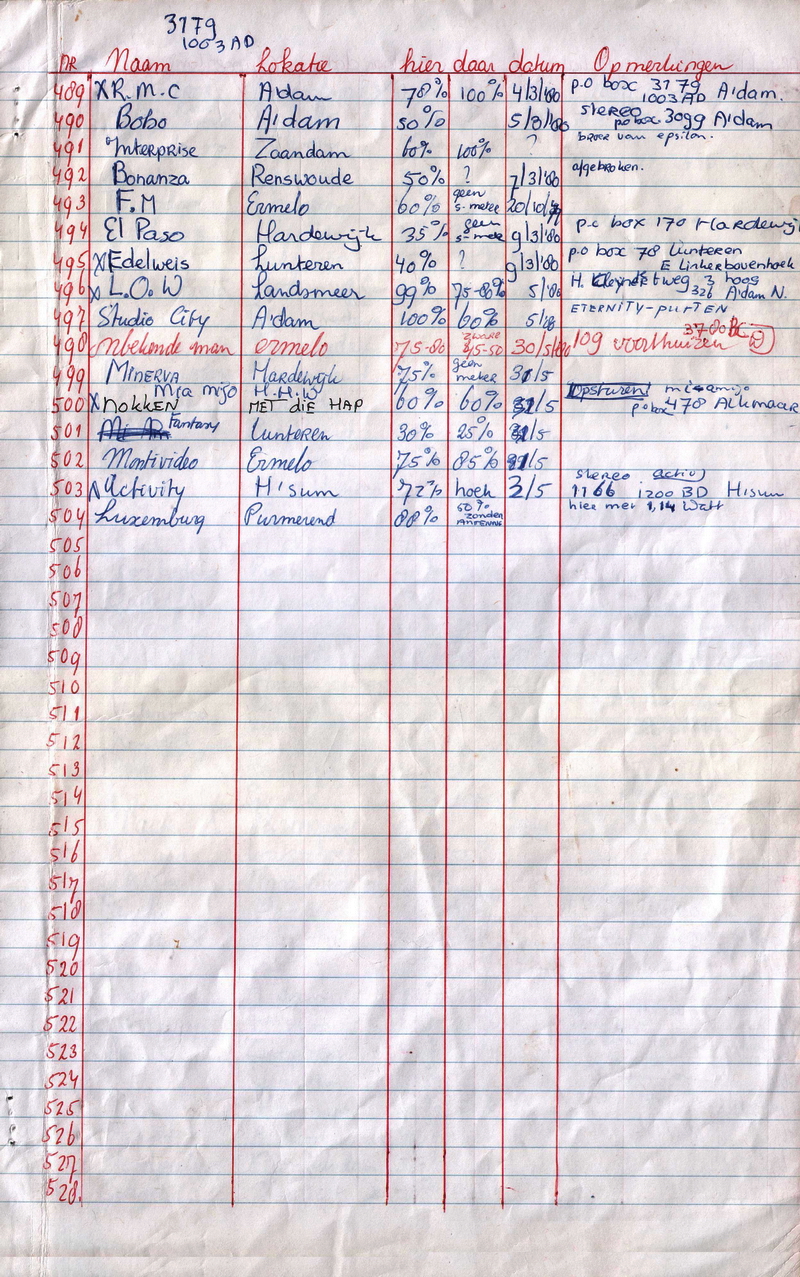 3179
1003 AD
NR Naam Lokatie hier daar datum Opmerkingen
489 X R.M.C A'dam 78% 100% 4/3/'80 p.o box 3179
1003 AD A'dam.
490 Bobo A'dam 50% 5/3/'80 stereo
po box 3099 A'dam
491 Interprise Zaandam 60% 100% ? broer van epsilon.
492 Bonanza Renswoude 50% ? 7/3/'80 afgebroken.
493 F.M Ermelo 60% geen s-meter 20/10/
494 El Paso Hardewijk 35% geen s-meter 9/3/'80 p.o box 170 Hardewij
495 X Edelweis Lunteren 40% ? 9/3/'80 p.o box 78 Lunteren
E linkerbovenhoek
496 X L.O.W Landsmeer 99% 75-80% 5/'80 H. 3 hoog
326 A'dam N.
497 Studio City A'dam 100% 60% 5/'80 ETERNITY-PUTTEN
498 onbekende man ermelo 75-80 30/5/'80 109 voorthuizen
499 MINERVA Hardewijk 75% geen meter 31/5
Mia mijo H.H.W Opsturen miamijo
500 X NOKKEN MET diE HAP 60% 60% 31/5 p.o box 478 Alkmaar
501 Fantasy Lunteren 30% 25% 31/5
502 Montivideo Ermelo 75% 85% 31/5
503 X Activity H'sum 72% hoek 2/5 stereo activ
1166 1200 BD H'sum
504 Luxemburg Purmerend 80% 50% zonder ANTENNE hier met 1,14 Watt
505
506
507
508
509
510
511
512
513
514
515
516
517
518
519
520
521
522
523
524
525
526
527
528.